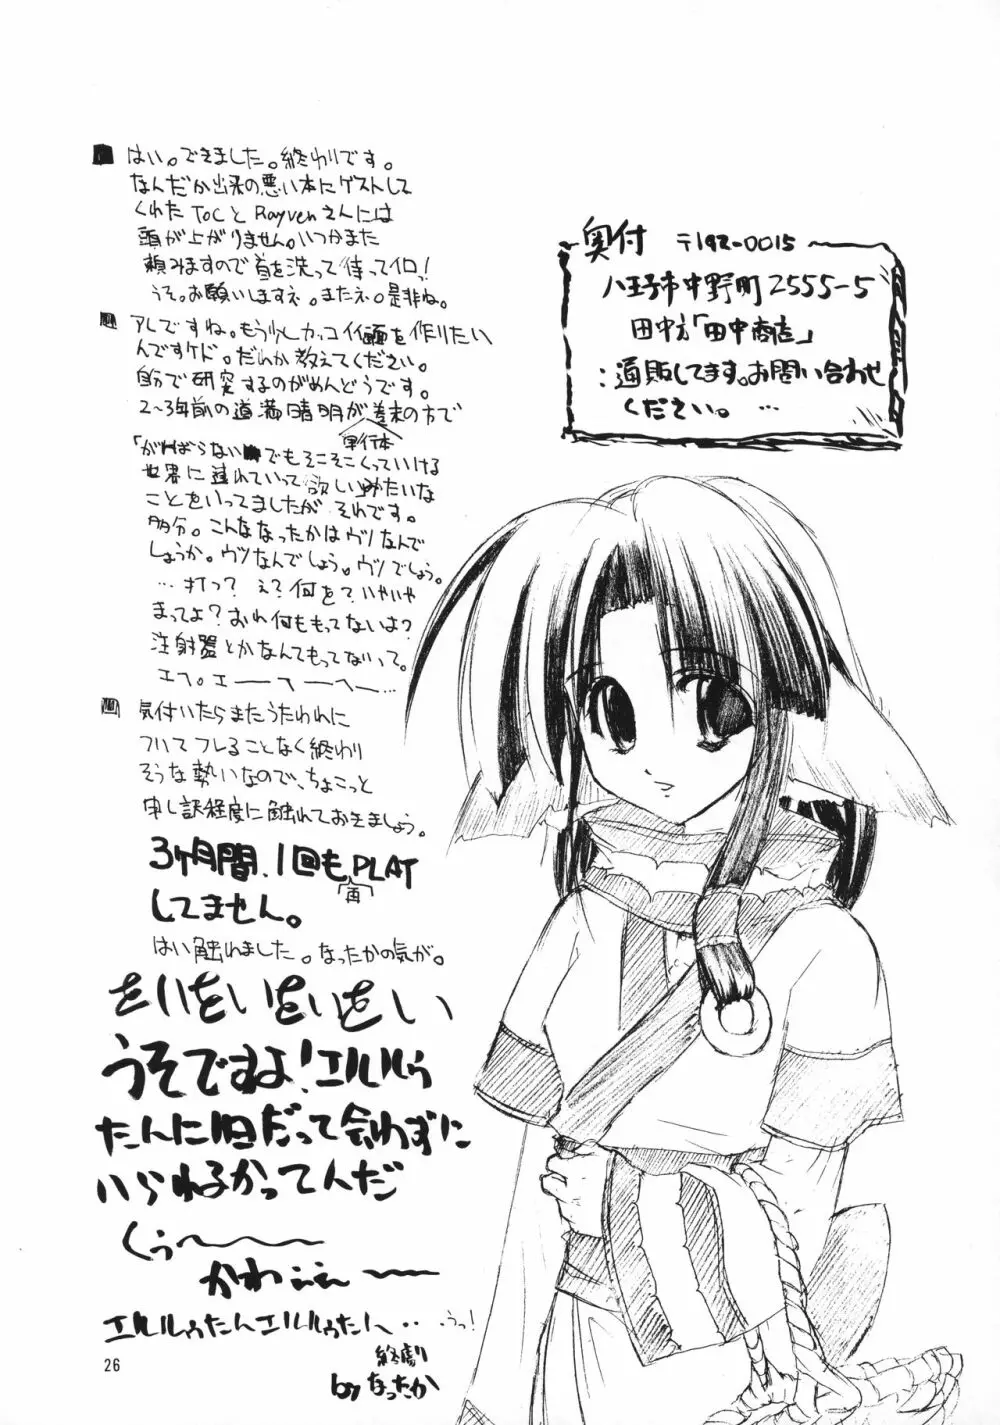 はい。できました。終わりです。
なんだか出来の悪い本にゲストして
くれた TOCと Rayvenさんには
頭が上がりません。いつかまた
頼みますので首を洗って待ってイロ!
うそ。お願いしますネ。またネ。是非ね。
アレですね。もう少しカッコイイ画面を作りたい
んですケド。だれか教えてください。
自分で研究するのがめんどうです。
2~3年前の道満晴明が巻末の方で
単行本
「がんばらないでもそこそこくっていける
世界に連れていって欲しい」みたいな
ことをいってましたが それです。
多分。こんななったかはウツなんで
しょうか。ウツなんでしょう。ウツでしょう。
…打って? え? 何を? いやいや
まってよ? おれ何ももってないよ?
注射器とかなんてもってないって。
エヘ。エーーヘーーヘー…
気付いたらまたうたわれに
ついてフレることなく終わり
そうな勢いなので、ちょこっと
申し訳程度に触れておきましょう。
3ヶ月間、1回も PLAY
再
してません。
はい触れました。なったかの気が。
をいをいをいをい
うそですよ!エルルゥ
たんに1日だって会わずに
いられるかってんだ
くぅ~~~
かわぇぇ~
エルルゥたんエルルゥたんへ・・・うっ!
終劇
by なったか
26
奥付 〒192-0015
八王子市中野町2555-5
田中方「田中商店」
:通販してます。お問い合わせ
ください。…